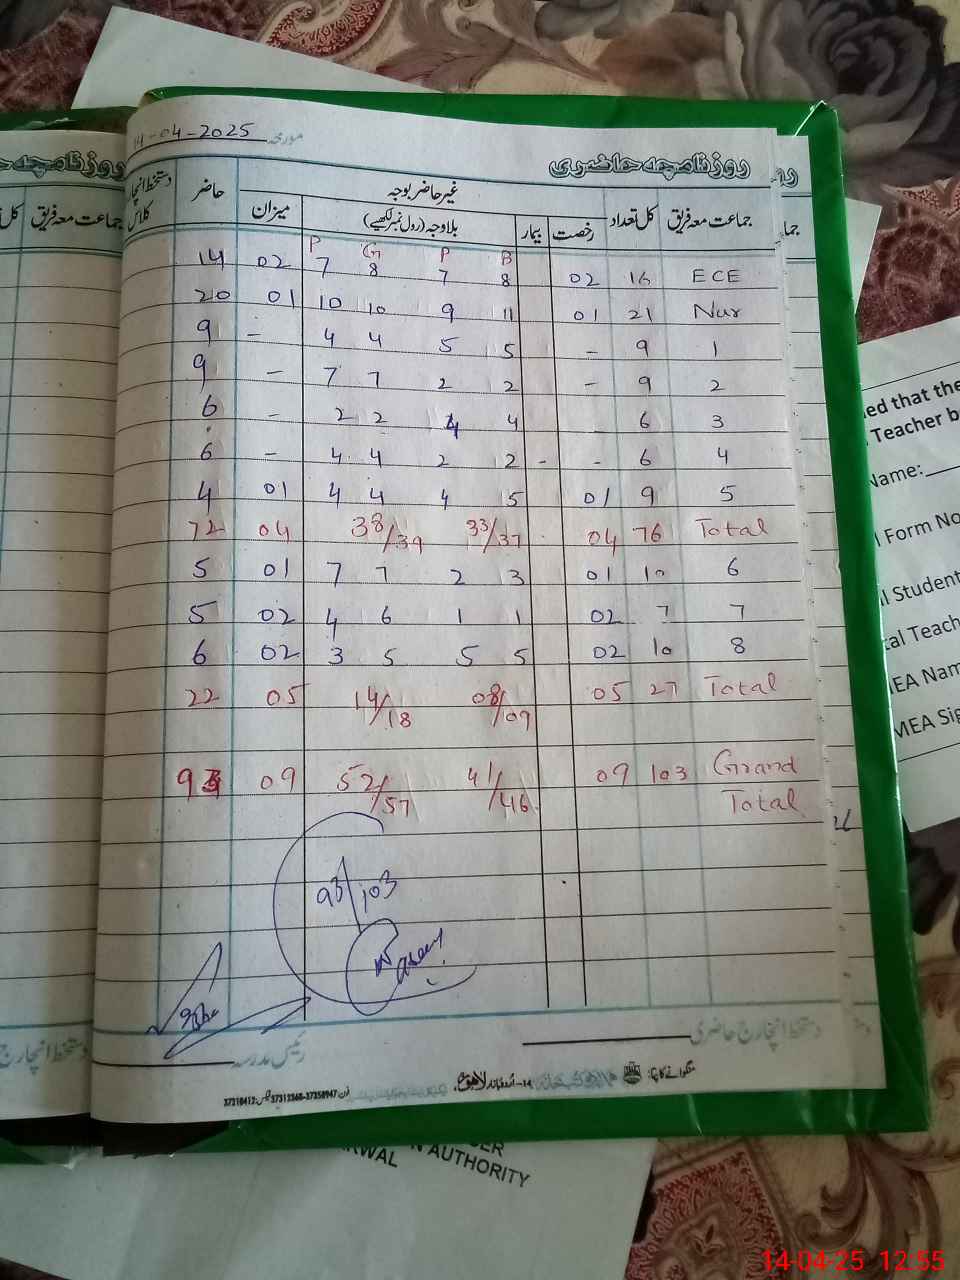 14-04-2025 مورخہ
روزنامچہ حاضری
جماعت معہ فریق کل تعداد غیر حاضر بوجہ حاضر دستخط انچارج کلاس
رخصت بیمار بلاوجہ (رول نمبر لکھیے) میزان
P G P B
14 02 7 8 7 8 02 16 ECE
20 01 10 10 9 11 01 21 Nur
9 - 4 4 5 5 - 9 1
9 - 7 7 2 2 - 9 2
6 - 2 2 4 4 6 3
6 - 4 4 2 2 - - 6 4
4 01 4 4 4 5 01 9 5
72 04 38/39 33/37 04 76 Total
5 01 7 7 2 3 01 10 6
5 02 4 6 1 1 02 7 7
6 02 3 5 5 5 02 10 8
22 05 14/18 08/09 05 27 Total
93 09 52/57 41/46 09 103 Grand
Total
93/103
Waseem
رئیس مدرسہ
دستخط انچارج حاضری
منگوانے کا پتہ:
14-اُردو بازار لاہور
فون 37358947-37312368 فیکس: 37310412
روزنامچہ حا
جماعت معہ فریق
دستخط انچارج
ed that the
Teacher b
Name:
Form No
Student
tal Teach
EA Nam
MEA Sig
N AUTHORITY
14-04-25 12:55